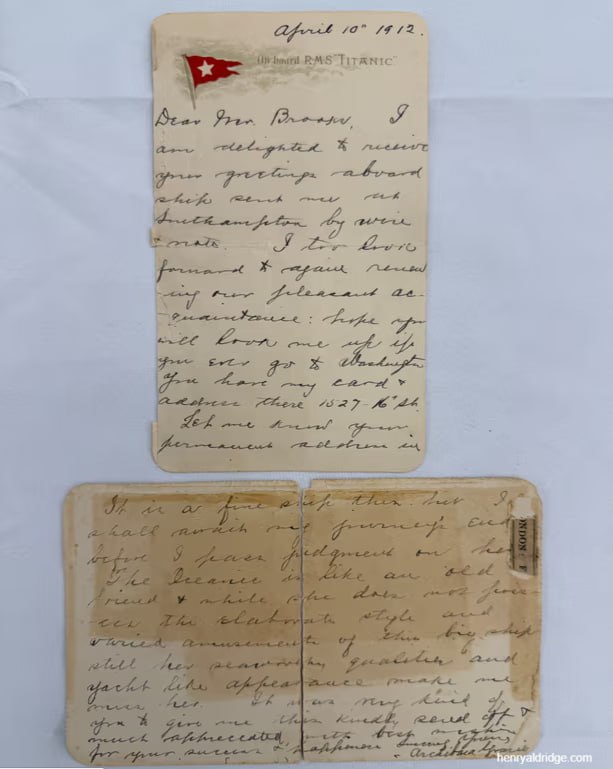 April 10th 1912.
On board R.M.S "TITANIC"
Dear Mr.
I
am delighted to receive
your greetings aboard
ship sent me at
Southampton by wire
& note. I too look
forward to again renew
-ing our pleasant ac-
quaintance: hope you
will look me up if
you ever go to Washington
You have my card &
address there 1527-16th St.
Let me know your
permanent address in
It is a fine ship this. but I
shall await my journeys end
before I pass judgment on her
The Oceanic is like an old
friend & while she does not poss-
ess the elaborate style and
varied amusements of this big ship
still her seaworthy qualities and
yacht like appearance make me
miss her. It was very kind of
you to give me this kindly send off &
much appreciated, with best wishes
for your success & happiness
Archibald Gracie
henryaldridge.com